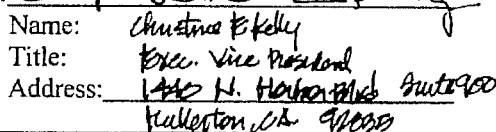 Name: Christine E Kelly
Title: Exec. Vice President
Address: 1440 N. Harbor Blvd Suite 900
Fullerton, CA